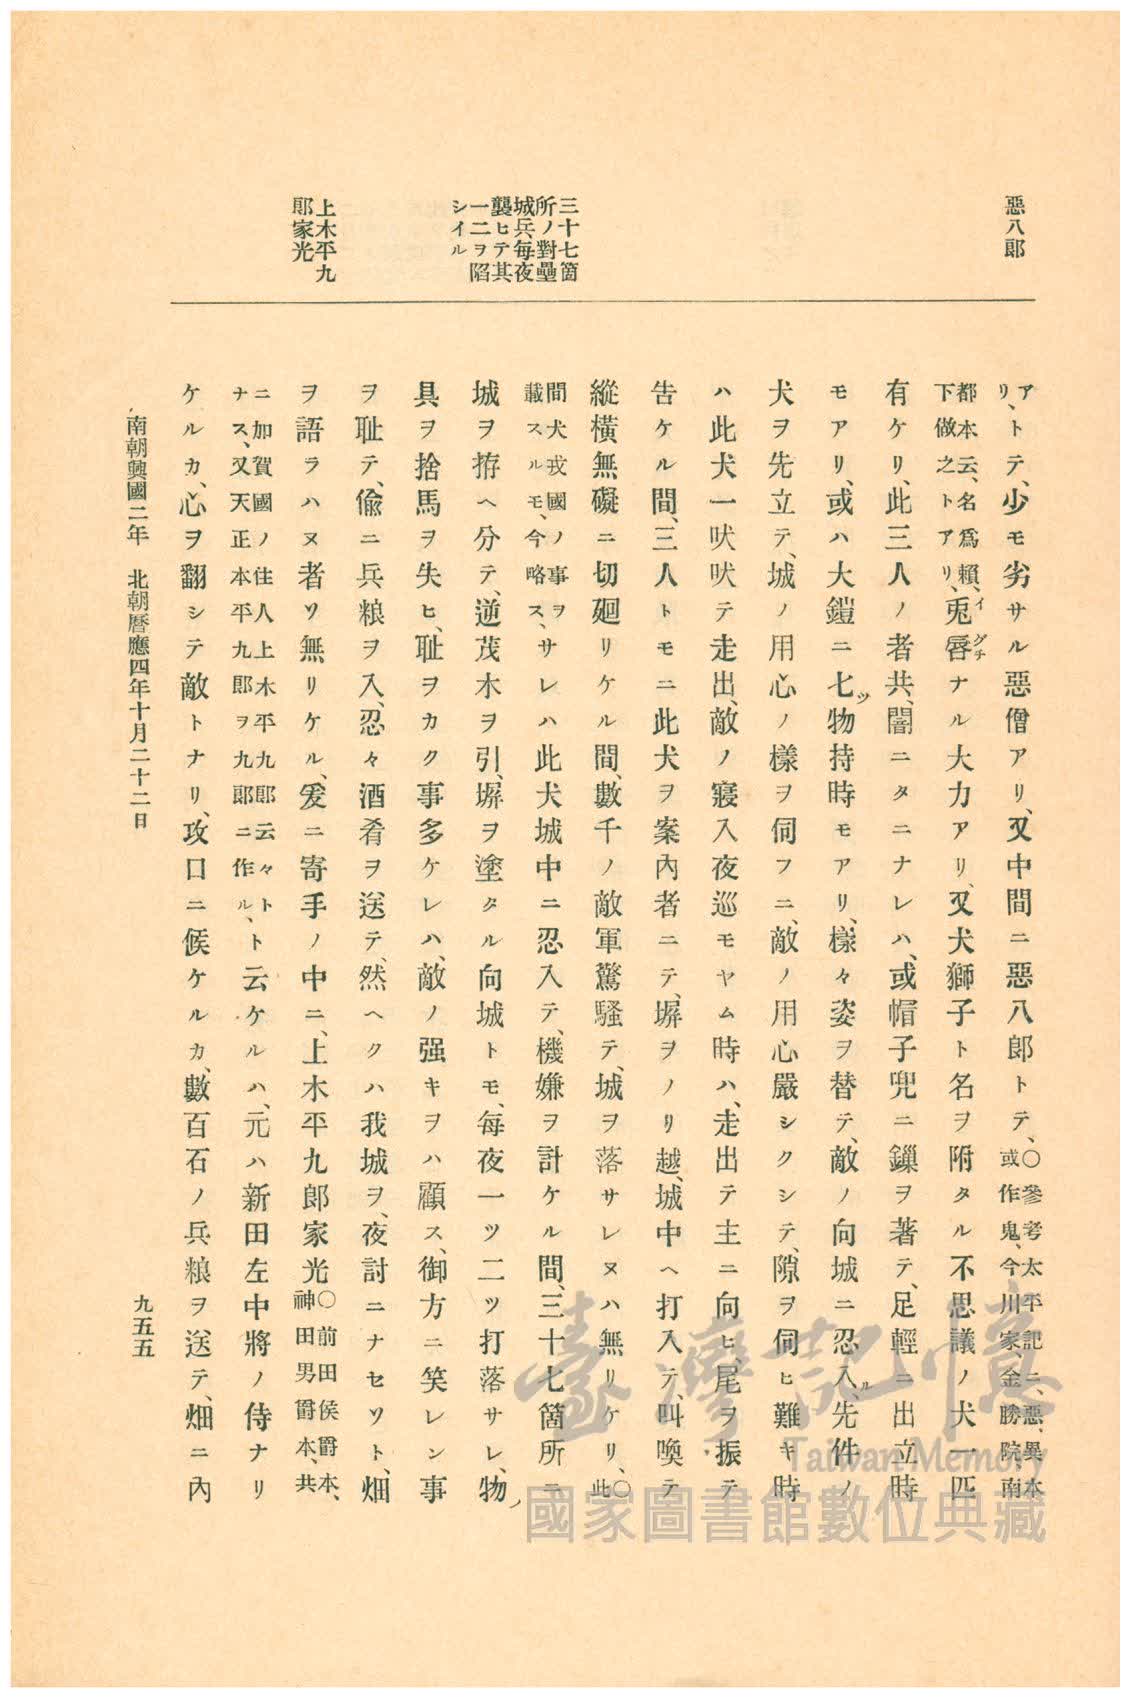 惡八郎
三十七箇
所ノ對壘
城兵每夜
襲ヒテ其
一二ヲ陷
シイル
上木平九
郎家光
アリ、トテ、少モ劣サル惡僧アリ、又中間ニ惡八郎トテ、〇參考太平記ニ、惡、異本或作鬼、今川家、金勝院、南
都本云、名爲賴、下做之トアリ、兎唇イグチナル大力アリ、又犬獅子ト名ヲ附タル不思議ノ犬一匹
有ケリ、此三人ノ者共、闇ニタニナレハ、或帽子兜ニ鏁ヲ著テ、足輕ニ出立時
モアリ、或ハ大鎧ニ七ツ物持時モアリ、樣々姿ヲ替テ、敵ノ向城ニ忍入ル、先件ノ
犬ヲ先立テ、城ノ用心ノ樣ヲ伺フニ、敵ノ用心嚴シクシテ、隙ヲ伺ヒ難キ時
ハ此犬一吠吠テ走出、敵ノ寢入夜巡モヤム時ハ、走出テ主ニ向ヒ、尾ヲ振テ
告ケル間、三人トモニ此犬ヲ案內者ニテ、塀ヲノリ越、城中ヘ打入テ、叫喚テ
縱橫無礙ニ切廻リケル間、數千ノ敵軍驚騷テ、城ヲ落サレヌハ無リケリ、〇此
間犬戎國ノ事ヲ載スルモ、今略ス、サレハ此犬城中ニ忍入テ、機嫌ヲ計ケル間、三十七箇所ニ
城ヲ拵ヘ分テ、逆茂木ヲ引、塀ヲ塗タル向城トモ、每夜一ツ二ツ打落サレ、物ノ
具ヲ捨馬ヲ失ヒ、耻ヲカク事多ケレハ、敵ノ强キヲハ顧ス、御方ニ笑レン事
ヲ耻テ、偸ニ兵粮ヲ入、忍々酒肴ヲ送テ、然ヘクハ我城ヲ、夜討ニナセソト、畑
ヲ語ラハヌ者ソ無リケル、爰ニ寄手ノ中ニ、上木平九郎家光〇前田侯爵本、神田男爵本、共
ニ加賀國ノ住人上木平九郎云々トナス、又天正本平九郎ヲ九郎ニ作ル、ト云ケルハ、元ハ新田左中將ノ侍ナリ
ケルカ、心ヲ翻シテ敵トナリ、攻口ニ候ケルカ、數百石ノ兵粮ヲ送テ、畑ニ內
南朝興國二年　北朝曆應四年十月二十二日
九五五
臺灣記憶
Taiwan Memory
國家圖書館數位典藏